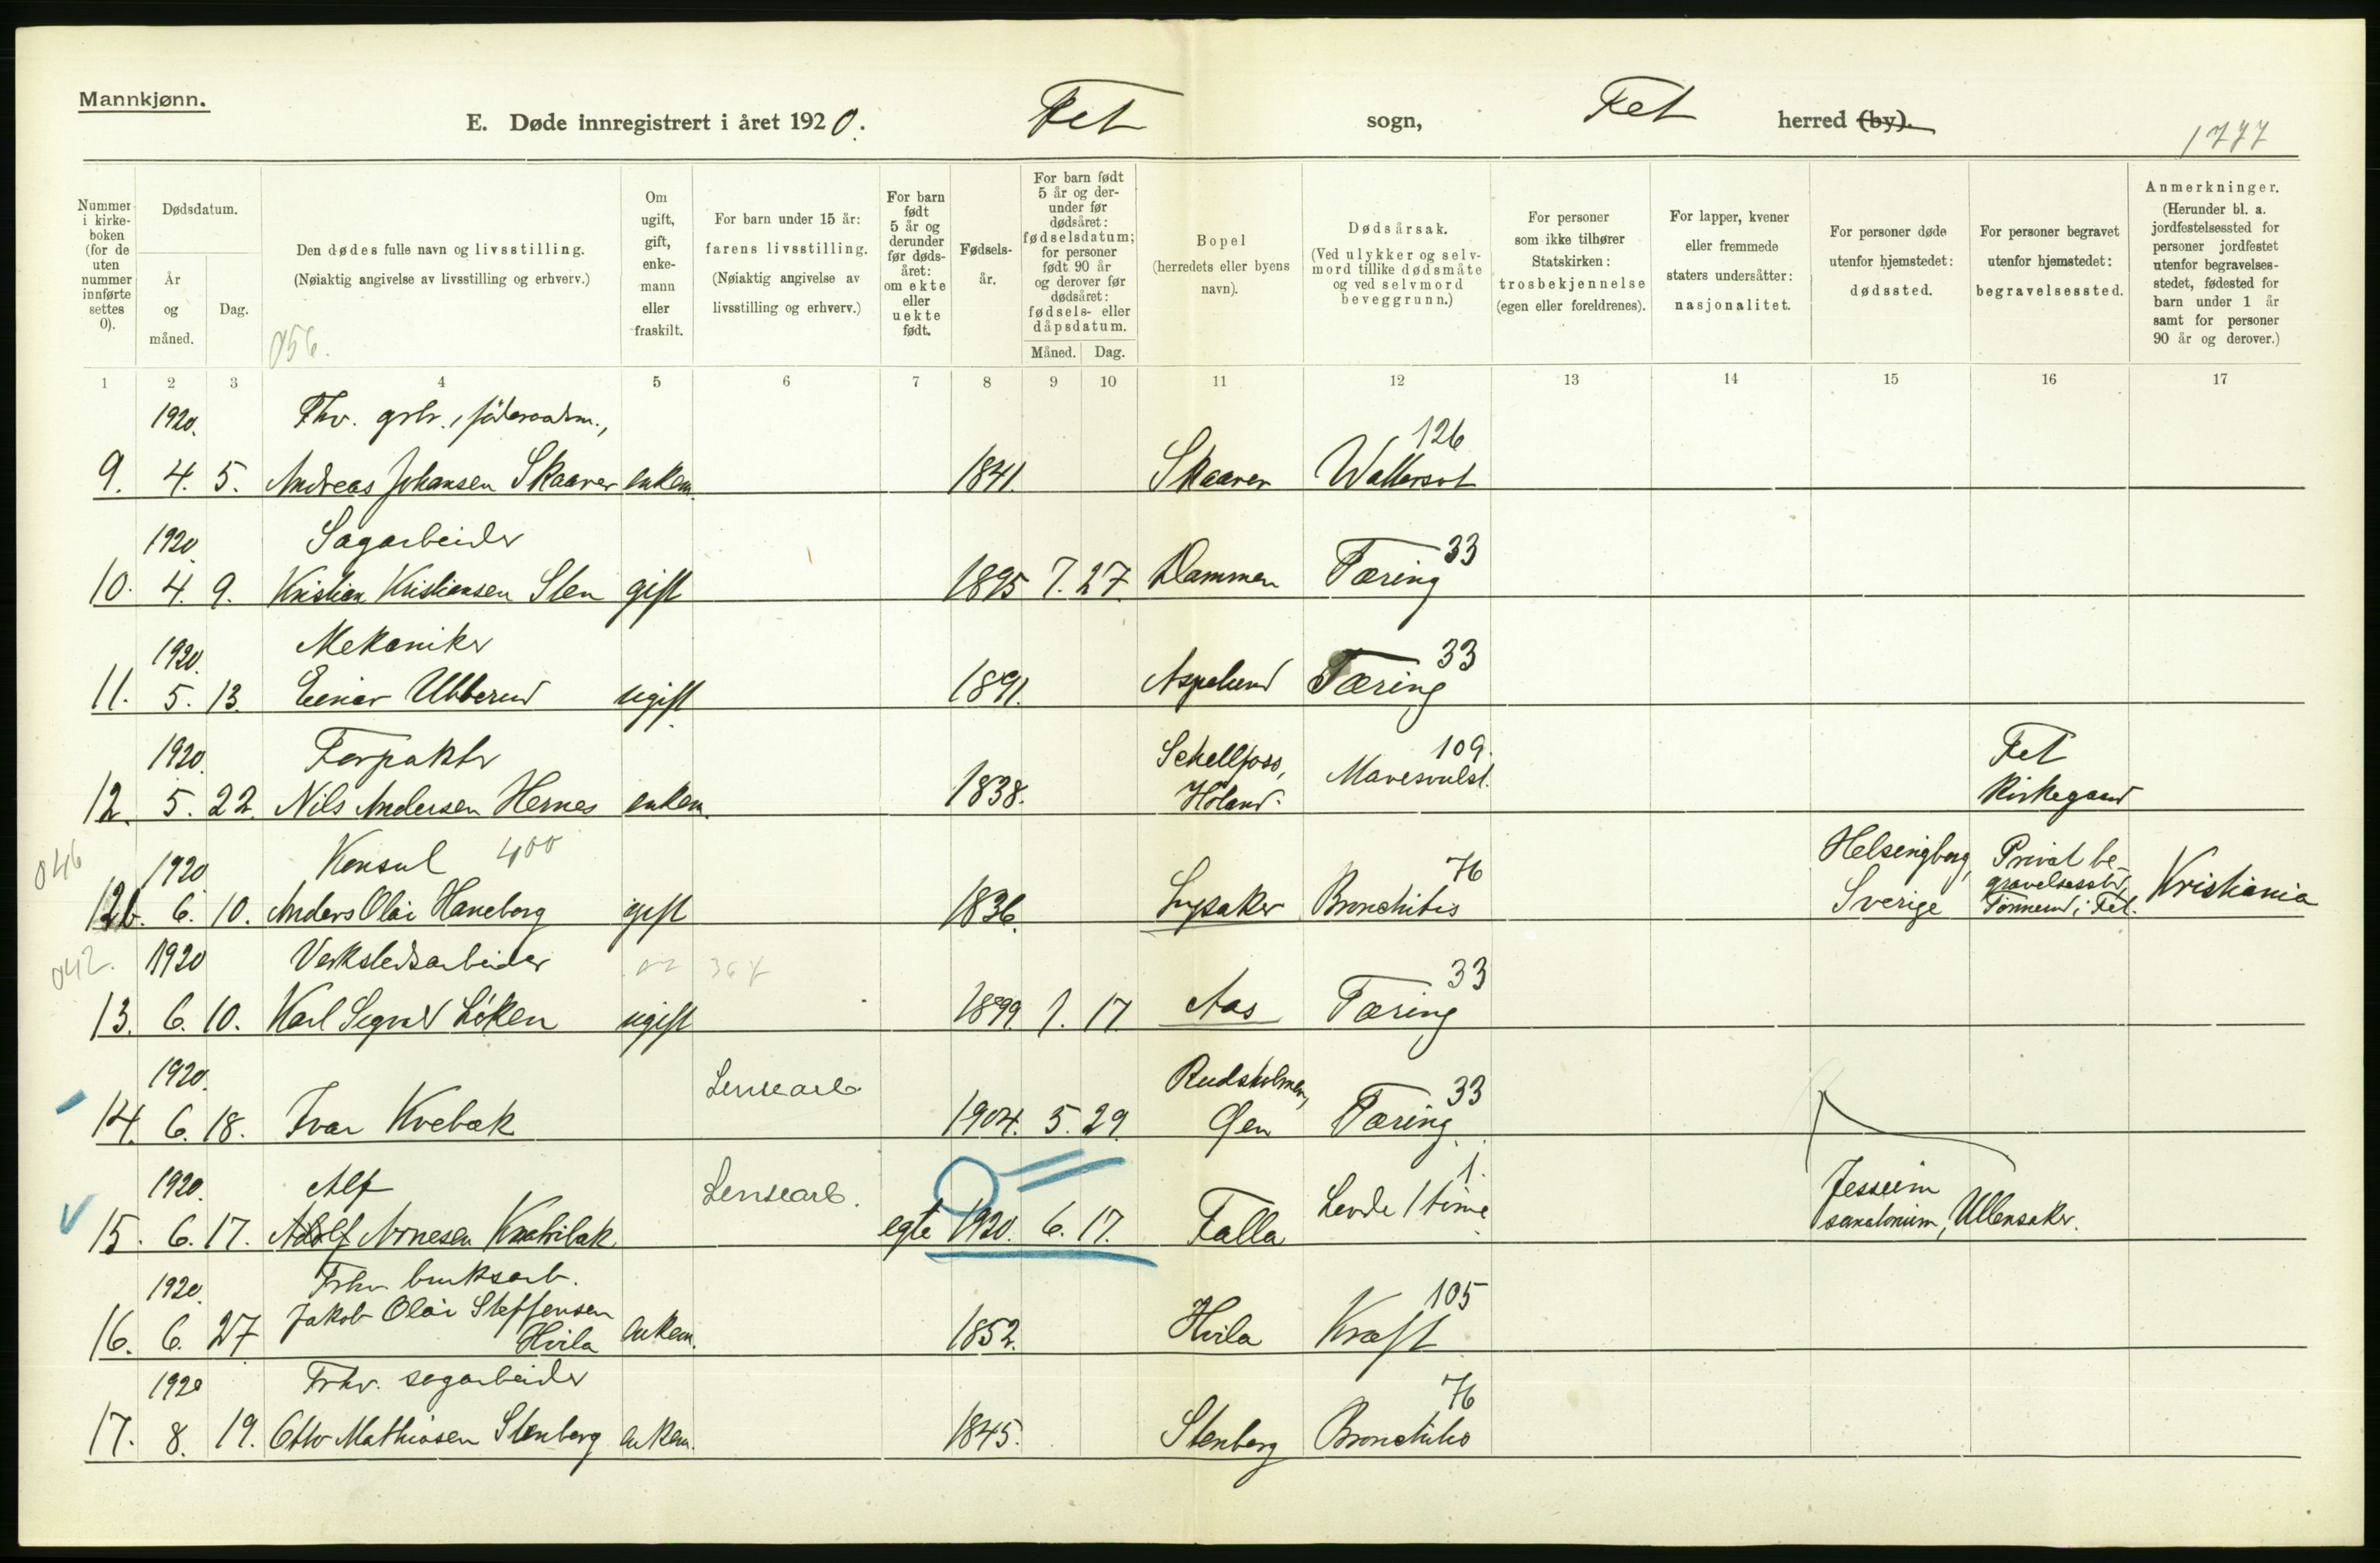 Mannkjønn.
E. Døde innregistrert i året 1920. Fet sogn, Fet herred (by).
1777
Nummer i kirkeboken (for de uten nummer innførte settes 0).
Dødsdatum.
År og måned.
Dag.
Den dødes fulle navn og livsstilling.
(Nøiaktig angivelse av livsstilling og erhverv.)
056.
Om ugift, gift, enkemann eller fraskilt.
For barn under 15 år:
farens livsstilling.
(Nøiaktig angivelse av livsstilling og erhverv.)
For barn født 5 år og derunder før dødsåret: om ekte eller uekte født.
Fødselsår.
For barn født 5 år og derunder før dødsåret: fødselsdatum; for personer født 90 år og derover før dødsåret: fødsels- eller dåpsdatum.
Måned. Dag.
Bopel
(herredets eller byens navn).
Dødsårsak.
(Ved ulykker og selvmord tillike dødsmåte og ved selvmord beveggrunn.)
For personer som ikke tilhører Statskirken:
trosbekjennelse
(egen eller foreldrenes).
For lapper, kvener eller fremmede staters undersåtter:
nasjonalitet.
For personer døde utenfor hjemstedet:
dødssted.
For personer begravet utenfor hjemstedet:
begravelsessted.
Anmerkninger.
(Herunder bl. a. jordfestelsessted for personer jordfestet utenfor begravelsesstedet, fødested for barn under 1 år samt for personer 90 år og derover.)
1 2 3 4 5 6 7 8 9 10 11 12 13 14 15 16 17
1920. Fhv. grbr., föderaadsm., 126
9. 4. 5. Andreas Johansen Skaarer enkem. 1841. Skaarer Wattersot
1920. Sagarbeider 33
10. 4. 9. Kristian Kristiansen Sten gift 1895 7. 27. Dammen Tæring
1920. Mekaniker 33
11. 5. 13. Einar Ubberud ugift 1891. Aspelund Tæring
1920. Forpakter Schellfoss, 109. Fet
12. 5. 22. Nils Andersen Hernes enkem. 1838. Höland. Mavesvulst. Kirkegaard
046 1920 Konsul 400 76 Helsingborg, Privat be-
12b. 6. 10. Anders Olai Haneborg gift 1836. Lysaker Bronchitis Sverige gravelsessted, Tönnerud i Fet. Kristiania
042. 1920 Verkstedsarbeider 02 367 33
13. 6. 10. Karl Sigurd Löken ugift 1899. 1. 17. Aas Tæring
1920. Lensearb Rudsholmen, 33
14. 6. 18. Ivar Kvebæk 1904. 5. 29. Öen Tæring.
1920. Alf Lensearb. 1. Jessheim
15. 6. 17. Adolf Arnesen egte 1920. 6. 17. Falla Levde 1 time sanatorium, Ullensaker.
1920. Frhv. bruksarb. 105
16. 6. 27 Jakob Olai Steffensen Hvila enkem. 1852. Hvila Kræft
1920 Frhv. sagarbeider 76
17. 8. 19. Otto Mathiasen Stenberg enkem. 1845. Stenberg Bronchitis